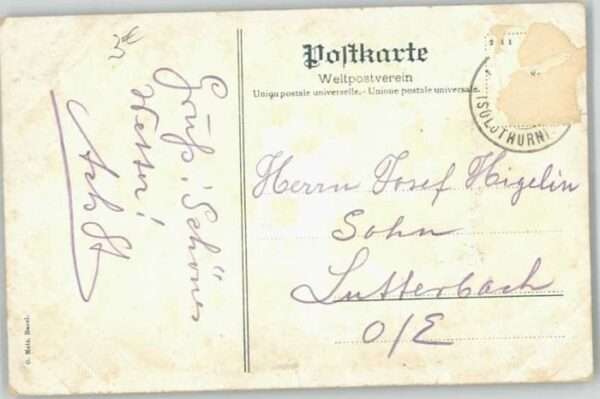 Postkarte
Weltpostverein
Union postale universelle. - Unione postale universale.
(SOLOTHURN)
Gruss! Schönes
Wetter!
Herrn Josef Higelin
Sohn
Lutterbach
O/E